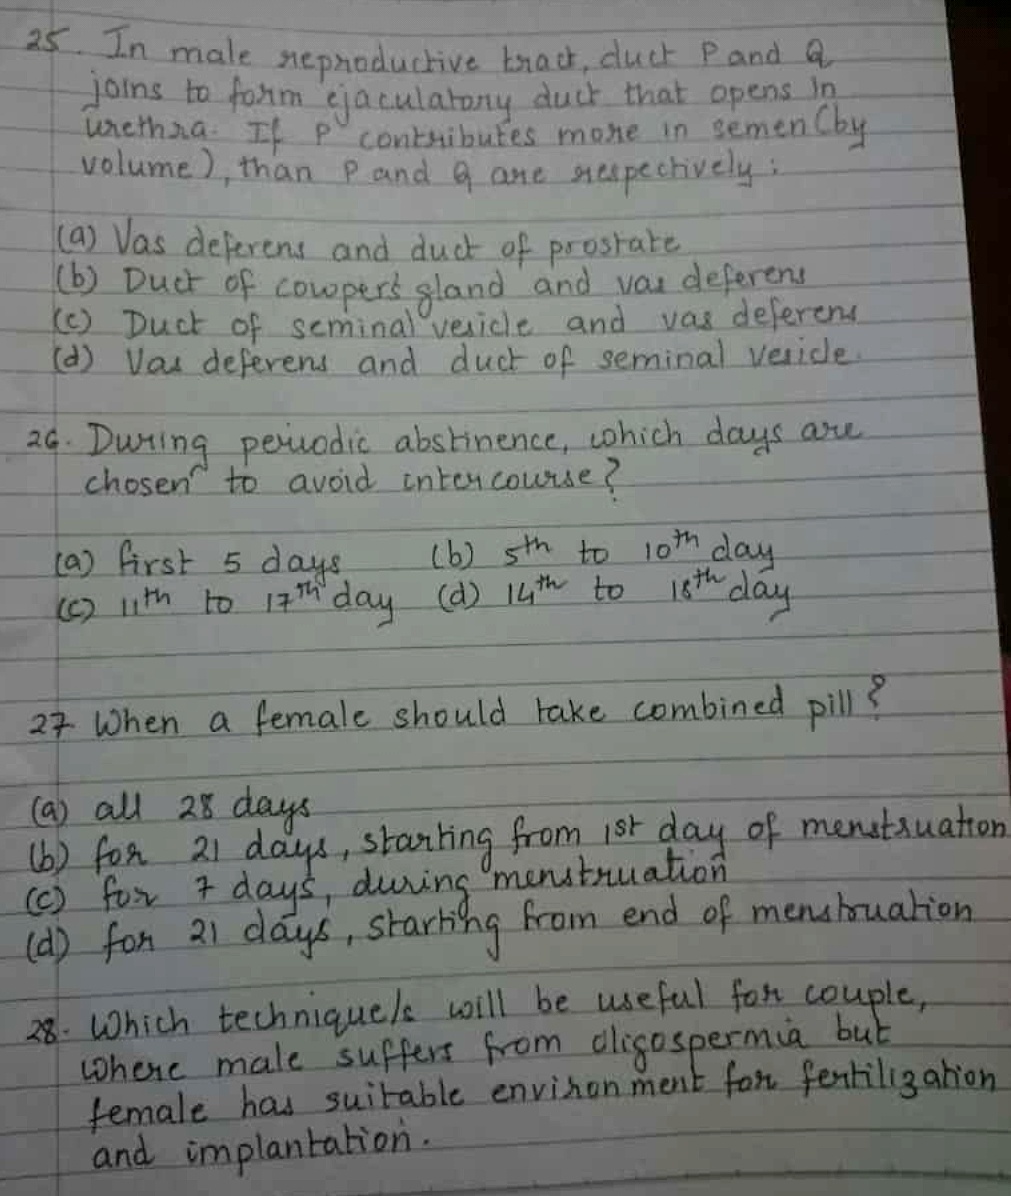 25. In male reproductive tract, duct P and Q
joins to form ejaculatory duct that opens in
urethra. If P contributes more in semen (by
volume), than P and Q are respectively :
(a) Vas deferens and duct of prostate
(b) Duct of cowper's gland and vas deferens
(c) Duct of seminal vesicle and vas deferens
(d) Vas deferens and duct of seminal vesicle.
26. During periodic abstinence, which days are
chosen to avoid intercourse?
(a) first 5 days (b) 5th to 10th day
(c) 11th to 17th day (d) 14th to 18th day
27 When a female should take combined pill?
(a) all 28 days
(b) for 21 days, starting from 1st day of menstruation
(c) for 7 days, during menstruation
(d) for 21 days, starting from end of menstruation
28. Which technique/s will be useful for couple,
where male suffers from oligospermia but
female has suitable environment for fertilization
and implantation.